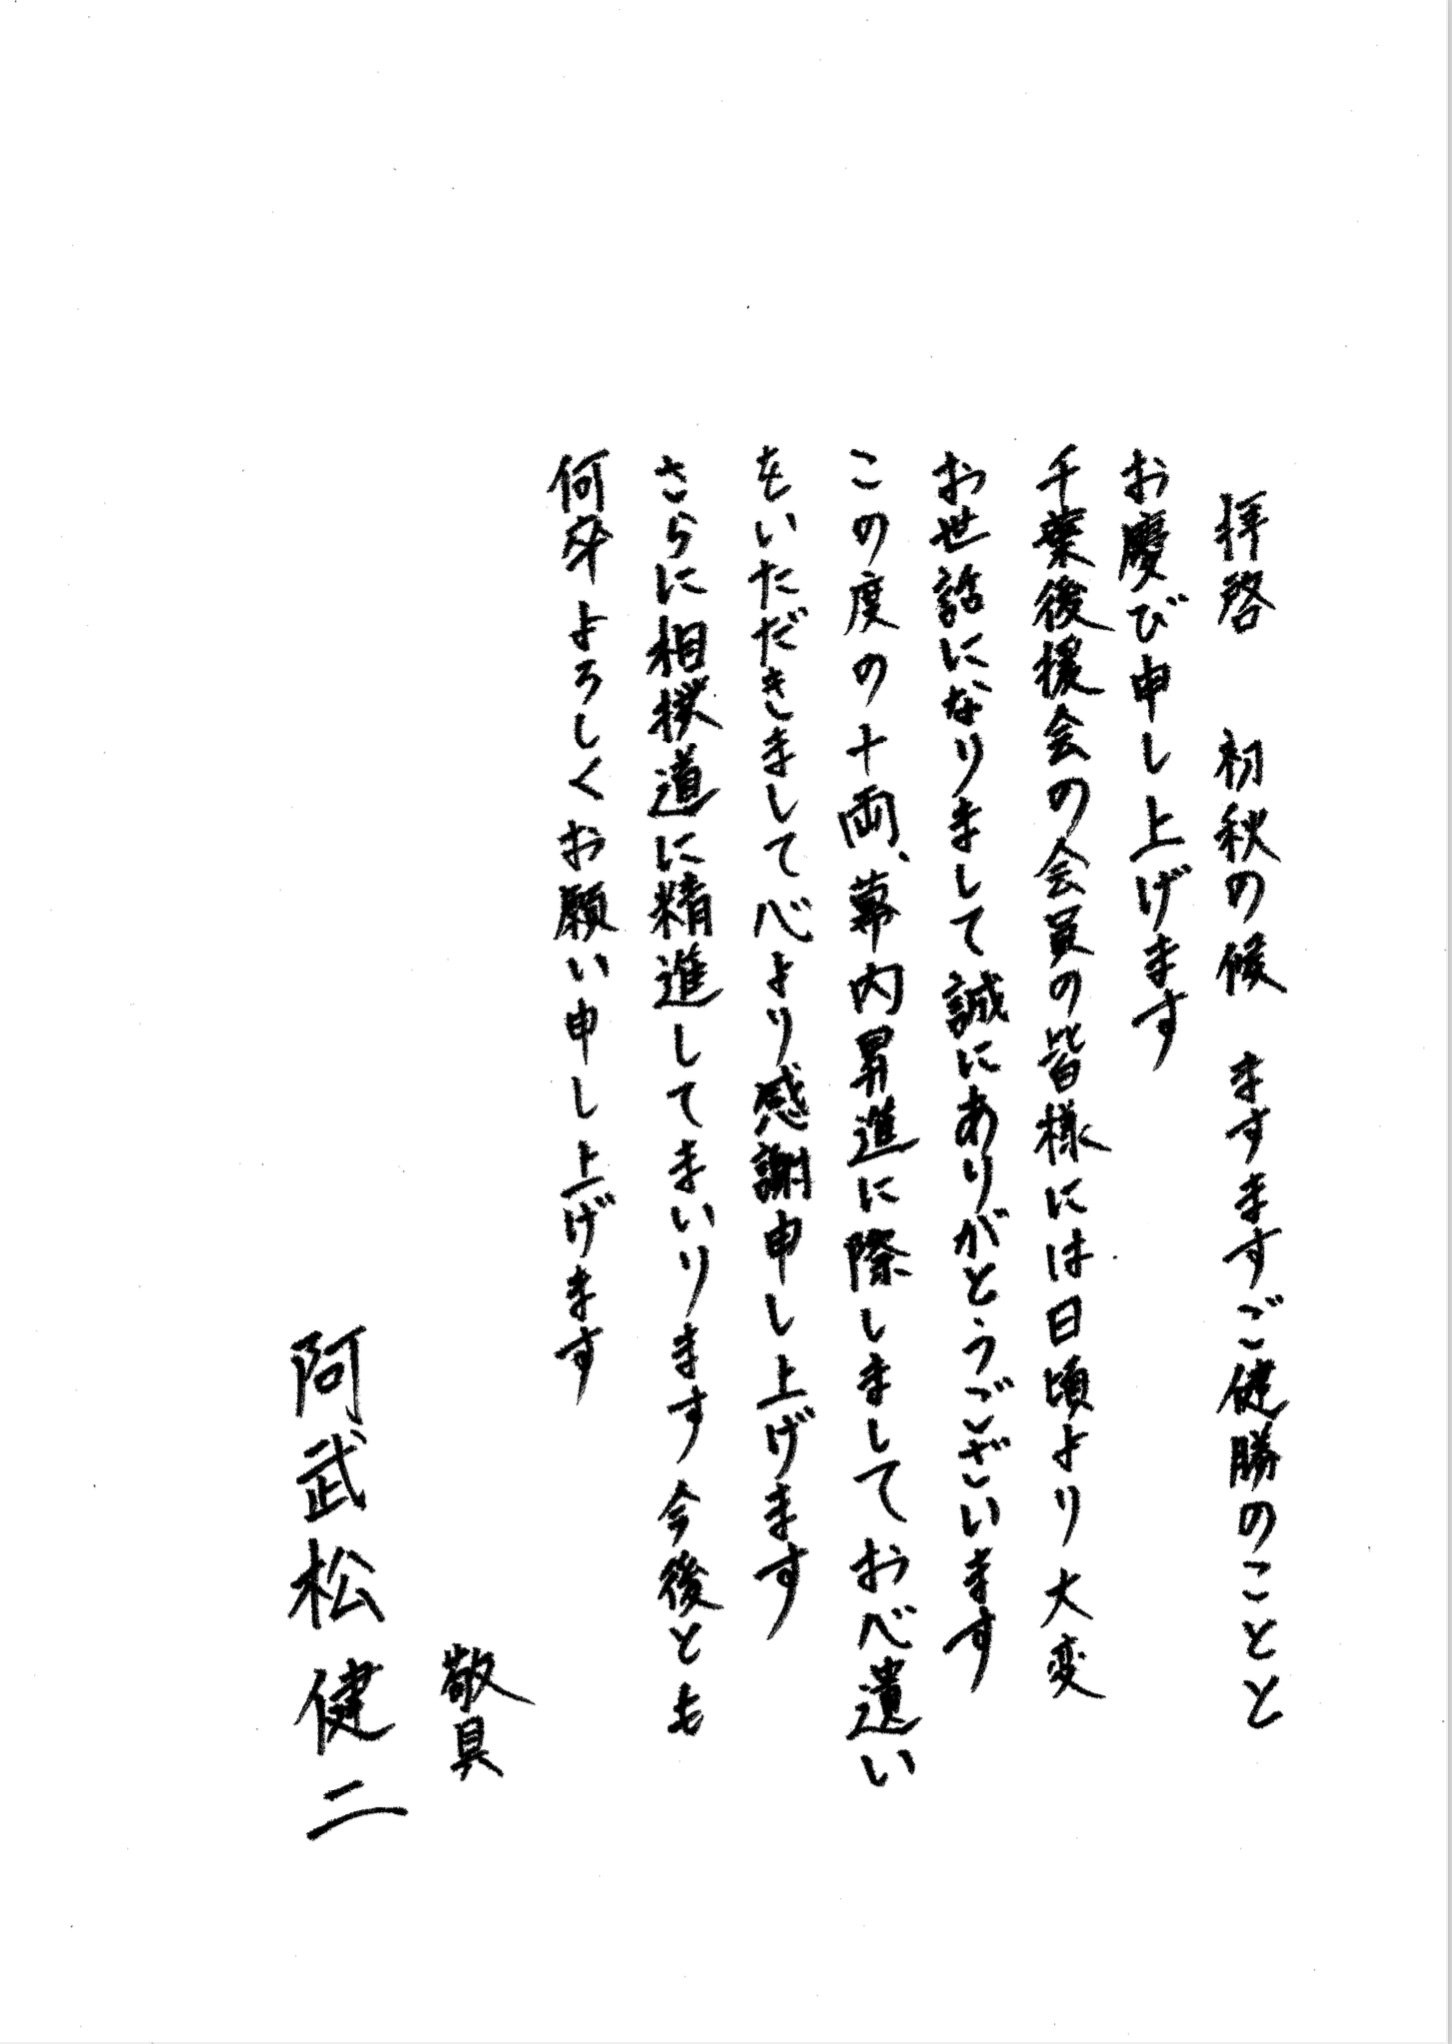 拝啓　初秋の候　ますますご健勝のことと
お慶び申し上げます
千葉後援会の会員の皆様には日頃より大変
お世話になりまして誠にありがとうございます
この度の十両、幕内昇進に際しましてお心遣い
をいただきまして心より感謝申し上げます
さらに相撲道に精進してまいります今後とも
何卒よろしくお願い申し上げます
敬具
阿武松健二